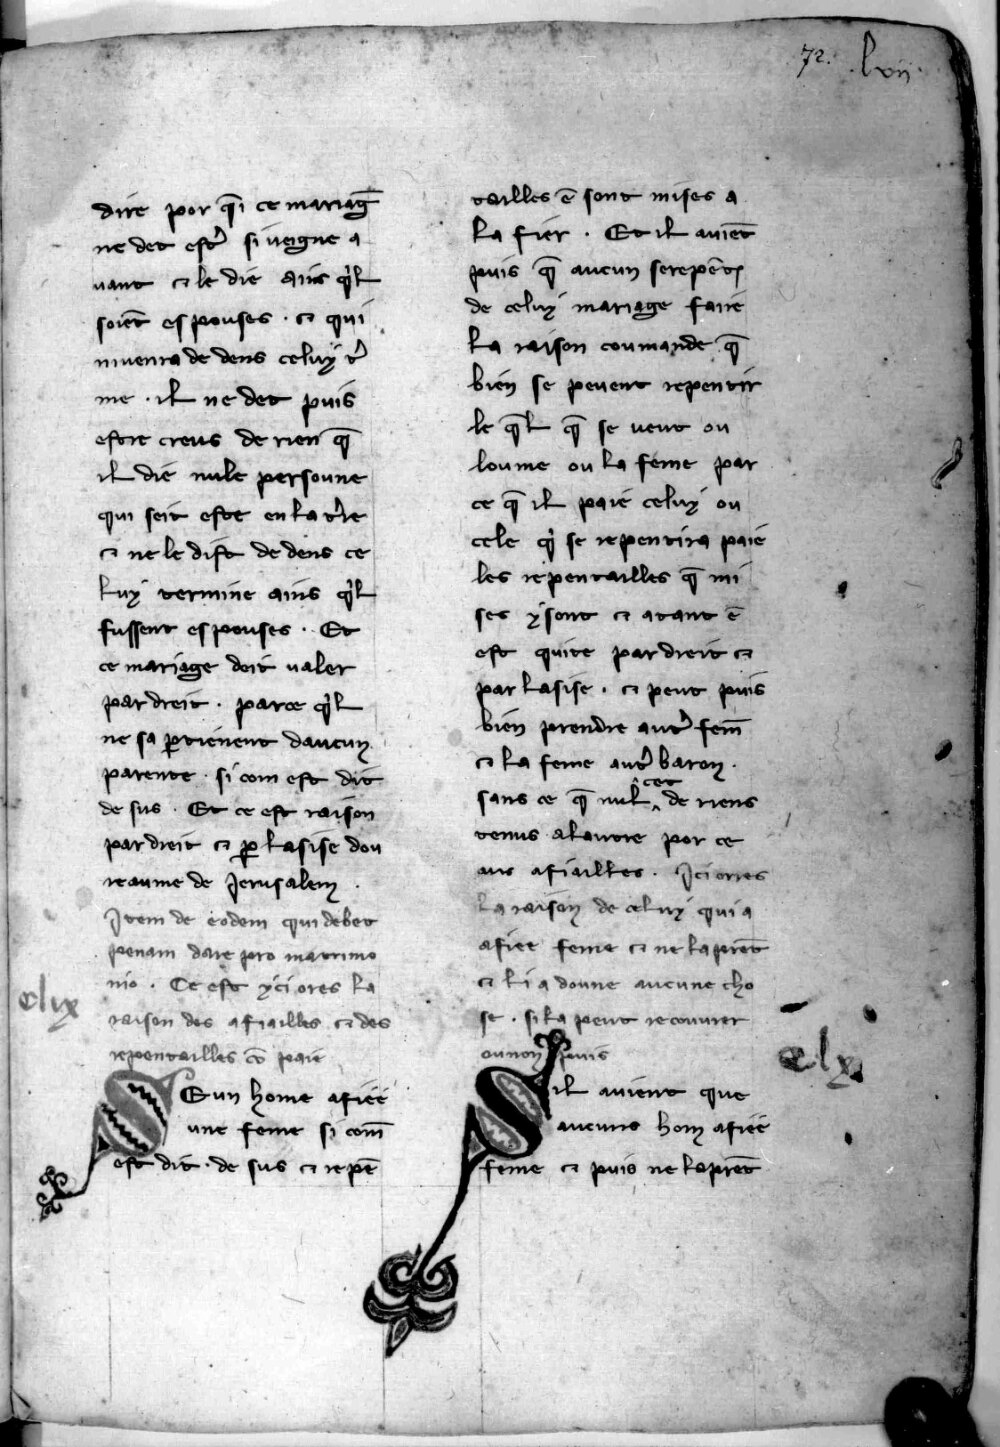 72. lxvii
dire por q̄i ce mariaḡ
ne det estr̉ si ueigne a
uant ⁊ le die ains q̉l
soiēt espouses · ⁊ qui
nuenra de dens celuy t̉
me · il ne det puis
estre creus de rien q̄
il die nule persoune
qui seit este en la t̉re
⁊ ne le dist de dens ce
luy termine ains q̉l
fussent espouses · Et
ce mariage deit ualer
par dreit · parce q̉l
ne sa ꝑtienent daucun
parente · si com est dit
de sus · Et ce est raison
par dreit ⁊ ꝑ lasise dou
reaume de Jerusalem ·
Item de eodem qui debet
penam dare pro matrimo
nio · Ce est yci ores la
raison des afiailles ⁊ des
repentailles cō paie
clix
S Eun home afiee
une feme si com̄
est dit · de sus ⁊ repē
tailles ē sont mises a
la fier · Et il auiēt
puis q̄ aucun se repēt
de celuy mariage faire
la raison coumande q̄
bien se peuent repentir
le q̄l q̄ se ueut ou
loume ou la feme par
ce q̄ il paie celuy ou
cele q̉ se repentira paie
les repentailles q̄ mi
ses y sont ⁊ atant ē
est quite par dreit ⁊
par lasise · ⁊ peut puis
bien prendre autr̉ fem̄
⁊ la feme autr̉ baron ·
sans ce q̄ nul cet de riens
tenus a lautre por ce
aus afiailles · Ici ores
la raison de celuy qui a
afiee feme ⁊ ne la prēt
⁊ li a doune aucune cho
se · si la peut recouurer
ou non puis
clx
S il auient que
aucuns hom afiee
feme ⁊ puis ne la prēt